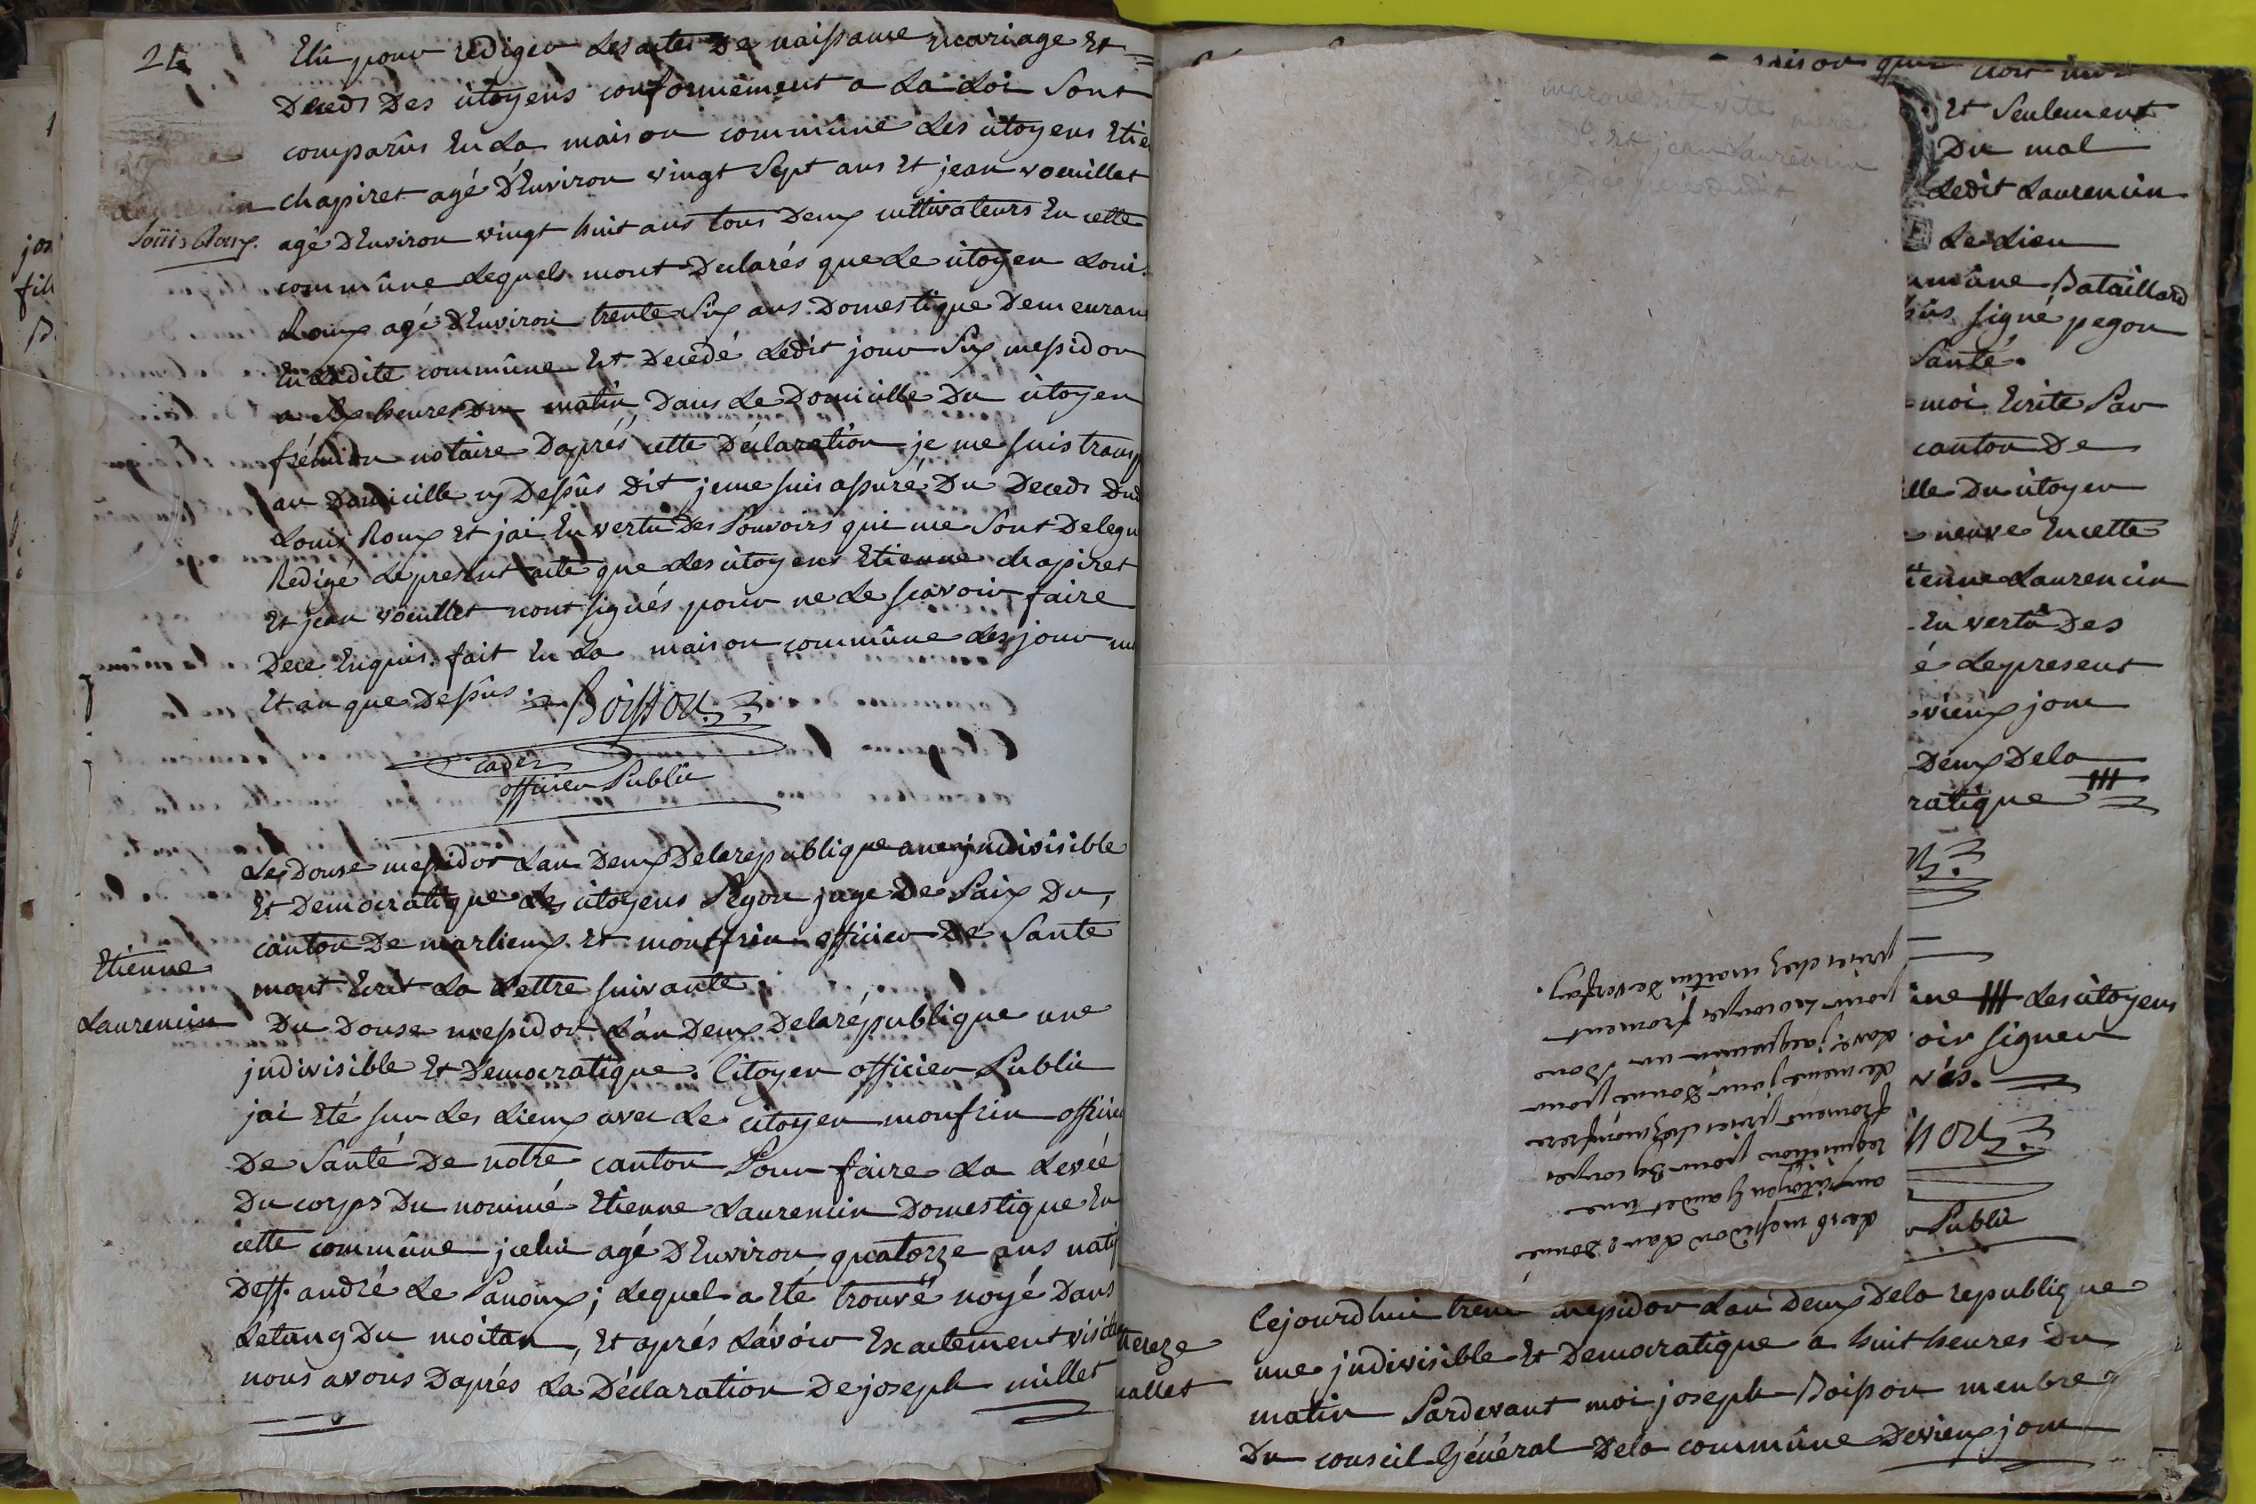 Elû pour rediger les actes De naissance mariage Et
Deceds Des citoyens conformément a La Loi Sont
comparûs En La maison commûne Les citoyens Etie
chapiret agé D'Environ vingt Sept ans Et jean voeuillet
agé D'Environ vingt huit ans tous Deux cultivateurs En cette
commûne Lequels mont Declarés que Le citoyen Loui
Roux agé D'Environ trente Six ans Domestique Demeuran
En Ladite commûne Est Decedé Ledit jour Six messidor
heures Du matin Dans Le Domicille Du citoyen
notaire Daprés cette Déclaration je me suis transp
au Domicille cy Dessûs Dit je me suis assuré Du Deceds Dud
Louis Roux Et jai En vertu Des Pouvoirs qui me Sont Delegu
Redigé Le present acte que Les citoyens Etienne chapiret
Et jean voeuillet nont signés pour ne Le scavoir faire
Dece Enquis. fait En La maison commûne Les jour
Et an que Dessûs. Boisson
cadet
officier Public
Louis Roux.
Le Douse messidor Lan Deux De la republique une jndivisible
Et Democratique Les citoyens Pegon juge De Paix Du
canton De marlieux Et montfrin officier De Santé
mont Ecrit La Lettre suivante.
Etienne
Laurencin
Du Douse messidor L'an Deux De la république une
jndivisible Et Democratique. Citoyen officier Public
jai Eté sur Les Lieux avec Le citoyen monfrin officie
De Santé De notre canton Pour faire La Levée
Du corps Du nommé Etienne Laurencin Domestique En
cette commûne jcelui agé D'Environ quatorze ans natif
De st. andré Le Panoux; Lequel a Eté trouvé noyé Dans
Letang Du moitan, Et aprés Lavoir Exactement visité
nous avons Daprés La Déclaration De joseph millet
Et Seulement
Du mal
Ledit Laurencin
Le Lieu
mûne Bataillard
signé pegon
Santé.
moi Ecrite Par
canton De
lle Du citoyen
neuve En cette
tienne Laurencin
En vertû Des
é Le present
vieux jour
Deux De la
ratique
Les citoyens
oir signer
vés.
Public
marguerite
Et jean Laurencin
Le 16 messidor Lan 2 Donné
au citoyen Gaudet une
requisition pour 89 coupes
froment prises chez monfrere
Le meme jour Donné pour
jacquemin un Bon
pour coupes froment
prises chez martin De versay.
Cejourdhui messidor Lan Deux De la republique
une jndivisible Et Democratique a huit heures Du
matin Pardevant moi joseph Boisson menbre
Du conseil Général De la commûne De vieux jour